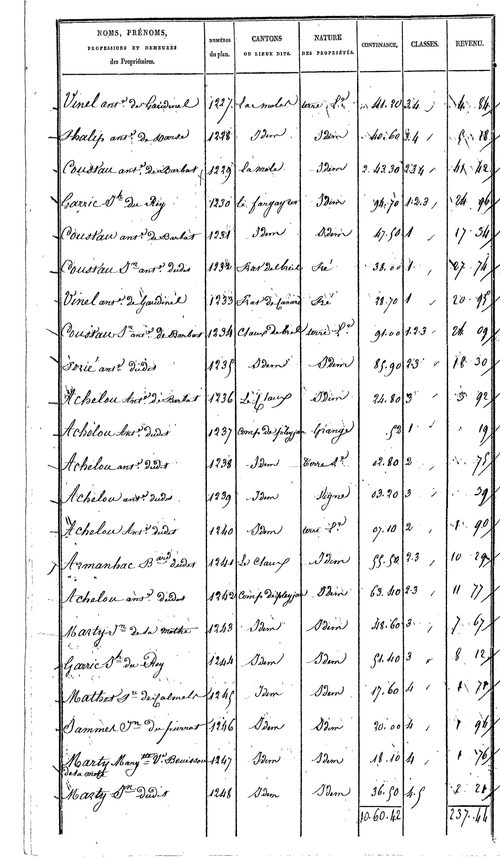 NOMS, PRÉNOMS, PROFESSIONS ET DEMEURES des Propriétaires. NUMÉROS du plan. CANTONS OU LIEUX DITS. NATURE DES PROPRIÉTÉS. CONTENANCE. CLASSES. REVENU.
Vinel ant.e de Gaudinel 1227 La mole terre L.e 41.20 3.4 4 84
ant.e de 1228 Idem Idem 40.60 3.4 5 18
Coustau ant.e de Barbat 1229 La mole Idem 2.43.30 2.3.4 41 42
Garric J.h du Rey 1230 le fargayrou Idem 94.70 1.2.3 24 96
Coustau ant.e de Barbat 1231 Idem Idem 47.50 1 17 34
Coustau J.n ant.e dudit 1232 Pré 38.00 1 27 74
Vinel ant.e de Gaudinel 1233 Pré 28.70 1 20 95
Coustau J.n ant.e de Barbat 1234 Claux de terre L.e 91.00 1.2.3 24 09
ant.e dudit 1235 Idem Idem 85.90 2.3 18 30
Achelou Ant.e de Barbat 1236 Le Claux Idem 24.80 3 3 92
Achelou Ant.e dudit 1237 Grange 52 1 19
Achelou ant.e dudit 1238 Idem terre L.e 02.80 2 75
Achelou ant.e dudit 1239 Idem Vigne 03.20 3 39
Achelou Ant.e dudit 1240 Idem terre L.e 07.10 2 1 90
Armanhac B.ard dudit 1241 Le Claux Idem 55.50 2.3 10 29
Achelou ant.e dudit 1242 Idem 63.40 2.3 11 77
Marty J.n de la mothe 1243 Idem Idem 48.60 3 7 67
Garric J.h du Rey 1244 Idem Idem 51.40 3 8 12
Mathet J.n de Calmels 1245 Idem Idem 17.60 4 1 71
Jammes J.n du 1246 Idem Idem 20.00 4 1 96
Marty Marg.tte V.e Bouissou 1247 Idem Idem 18.10 4 1 76
de la mothe
Marty J.n dudit 1248 Idem Idem 36.50 4.5 2 21
10.60.42 237.44